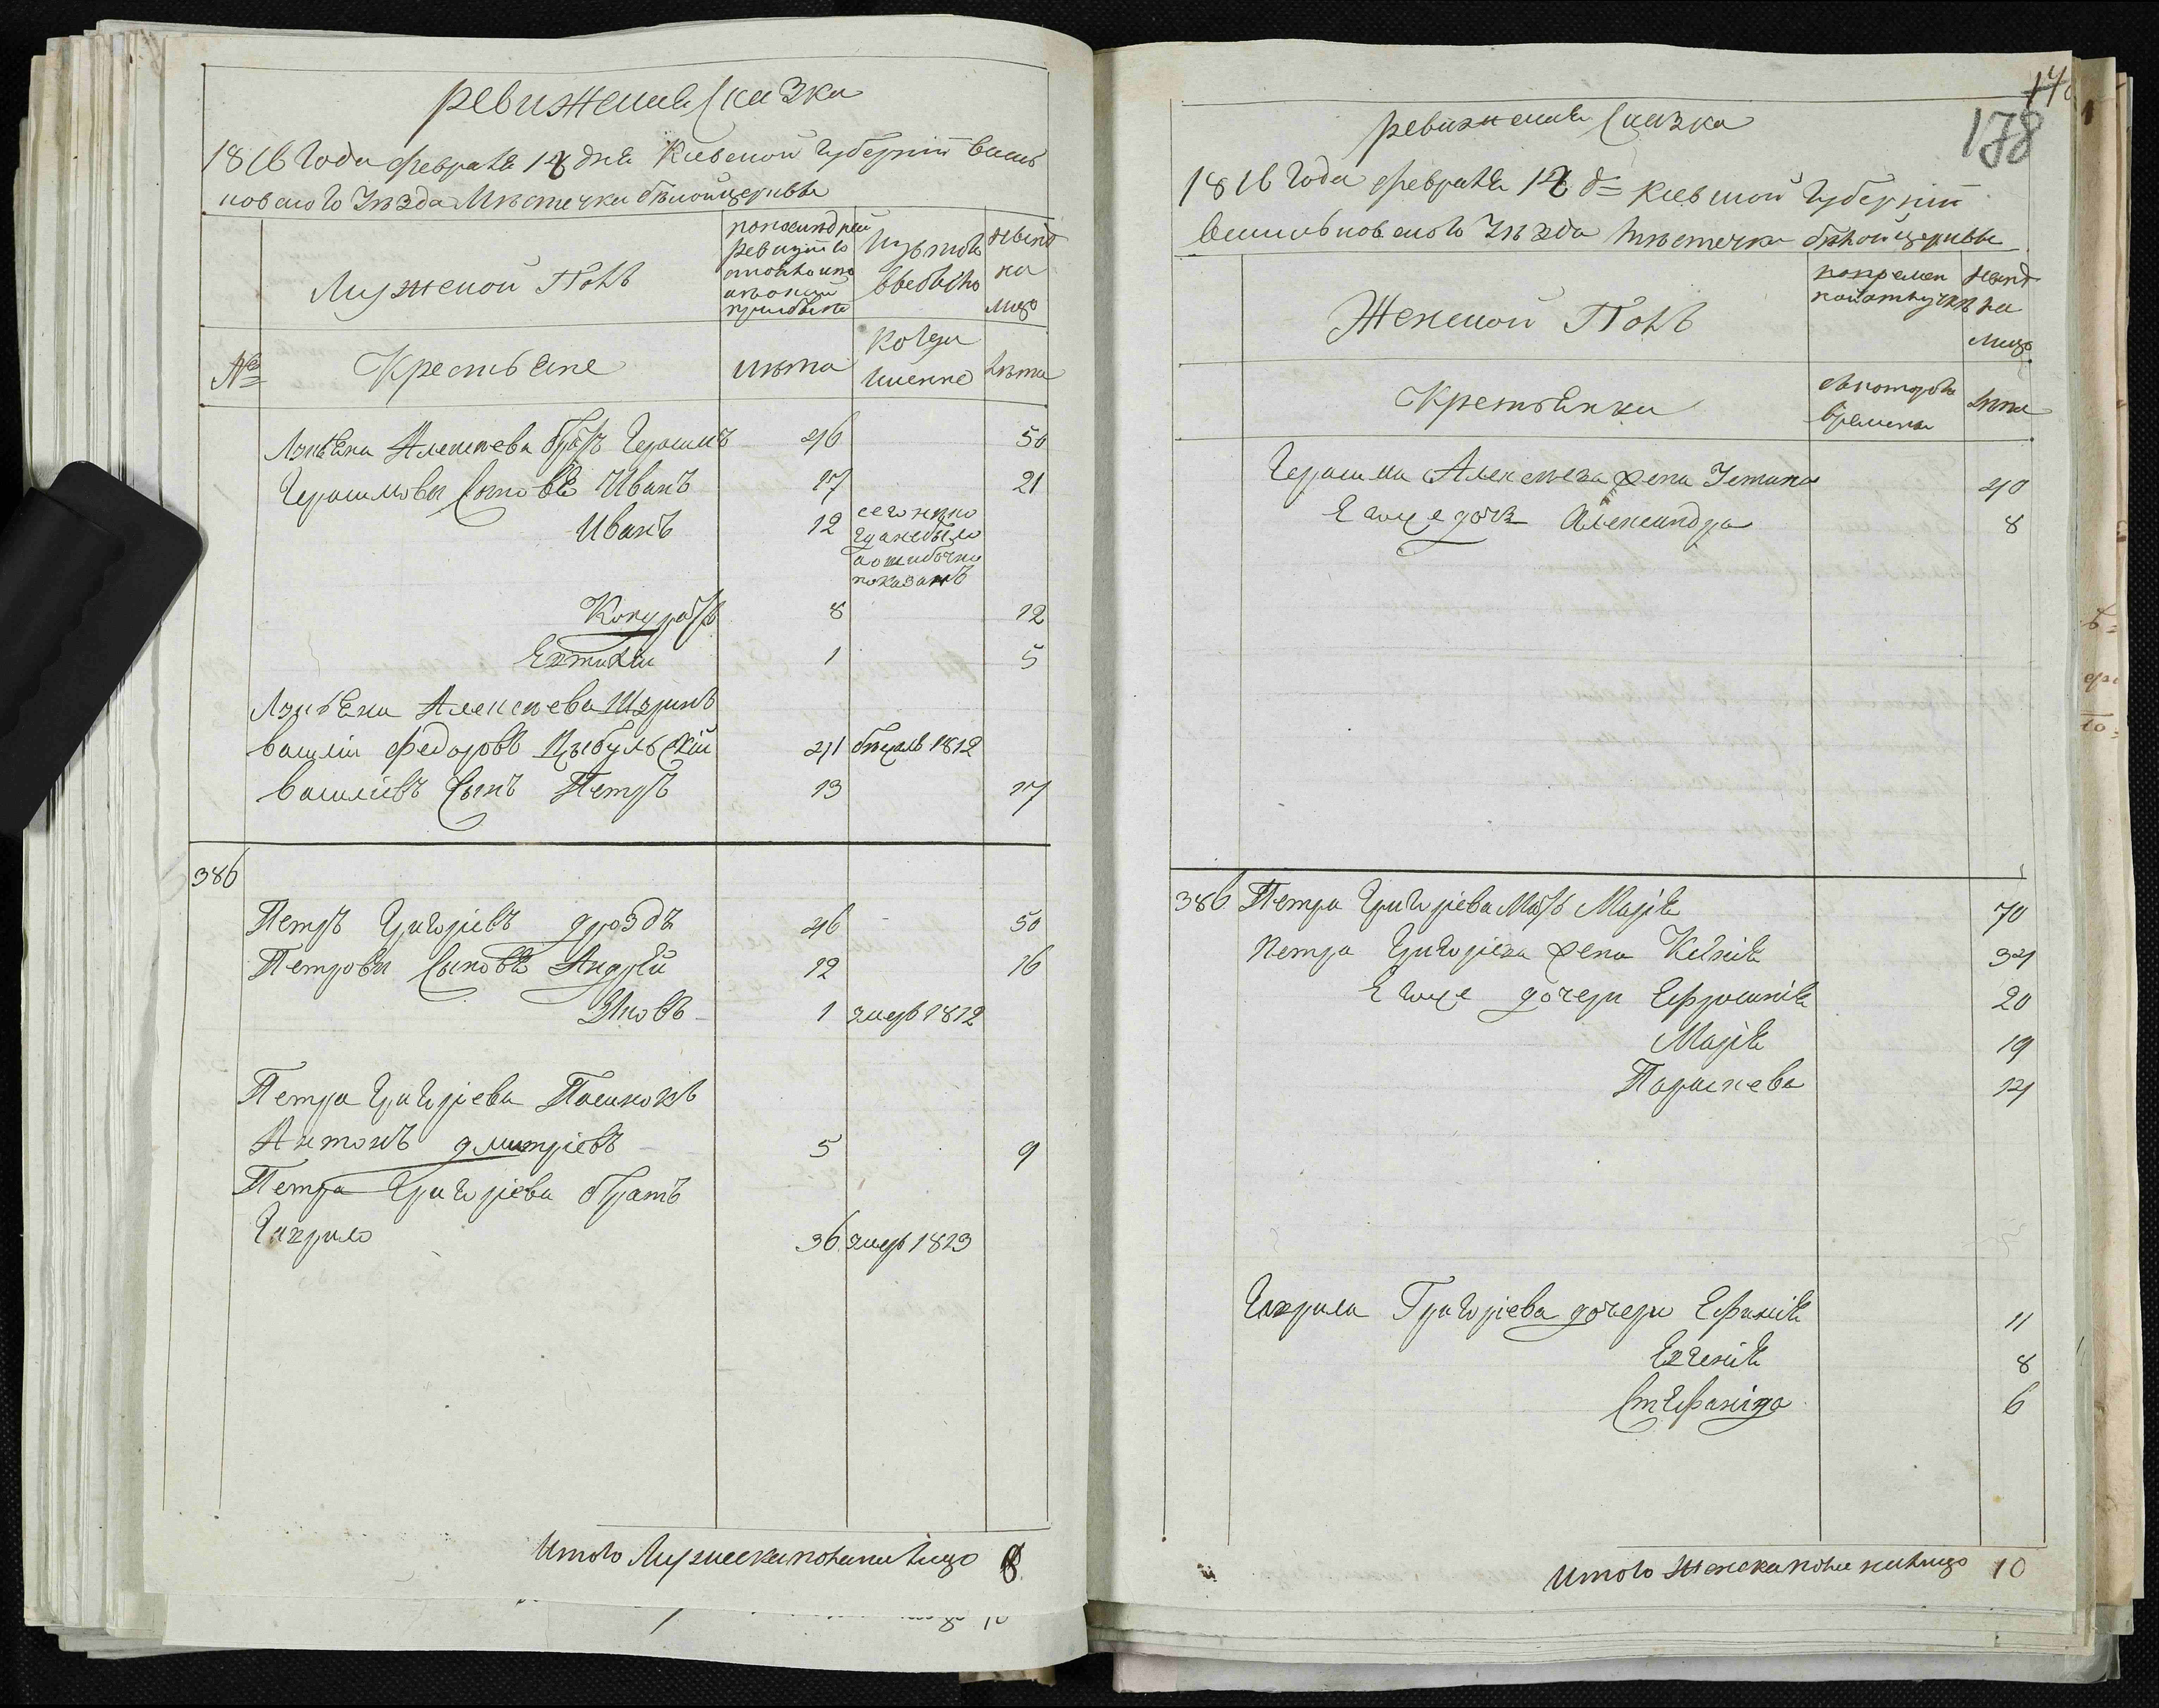 ревижская Сказка
1816 Года февраля 18 дня Киевской Губернїи Василь
ковского Уезда Местечка белойцеркви
Мужеской Полъ
попоследней
ревизїи
состояло
Изътого
выбыло
Ныне
на
лицо
№
Крестьяне
Лета
Когда
именно
Лета
Лукьяна Алексеева братъ Герасимъ 46 50
Герасимовы Сыновья Иванъ 17 21
Иванъ 12
ошибочно
показанъ
Кондратъ 8 12
Евтихій 1 5
Лукьяна Алексеева Шуринъ
Василій Федоровъ Цыбульскій 41 бежалъ 1812
Василіевъ Сынъ Петръ 13 17
386
Петръ Григоріевъ дроздъ 46 50
Петровы Сыновья Андрей 12 16
Яковъ 1 умеръ 1812
Петра Григоріева Пасинокъ
Антонъ дмитріевъ 5 9
Петра Григоріева братъ
Гаврило 36 умеръ 1813
Итого Мужеска пола налицо 8
178
ревижская Сказка
1816 Года февраля 18 д= Киевской Губернїи
Васильковского Уезда Местечка белойцеркви
Женской Полъ
Ныне
на
лицо
Крестьянки
времени
Лета
Герасима Алексеева жена Устина 40
Егоже дочь Александра 8
386 Петра Григоріева Мать Марія 70
Петра Григоріева жена Ксенія 34
Егоже дочери Ефросинія 20
Марія 19
Параскева 14
Гаврила Григоріева дочери Ефимія 11
Евгенія 8
Стефанида 6
Итого Женска пола налицо 10